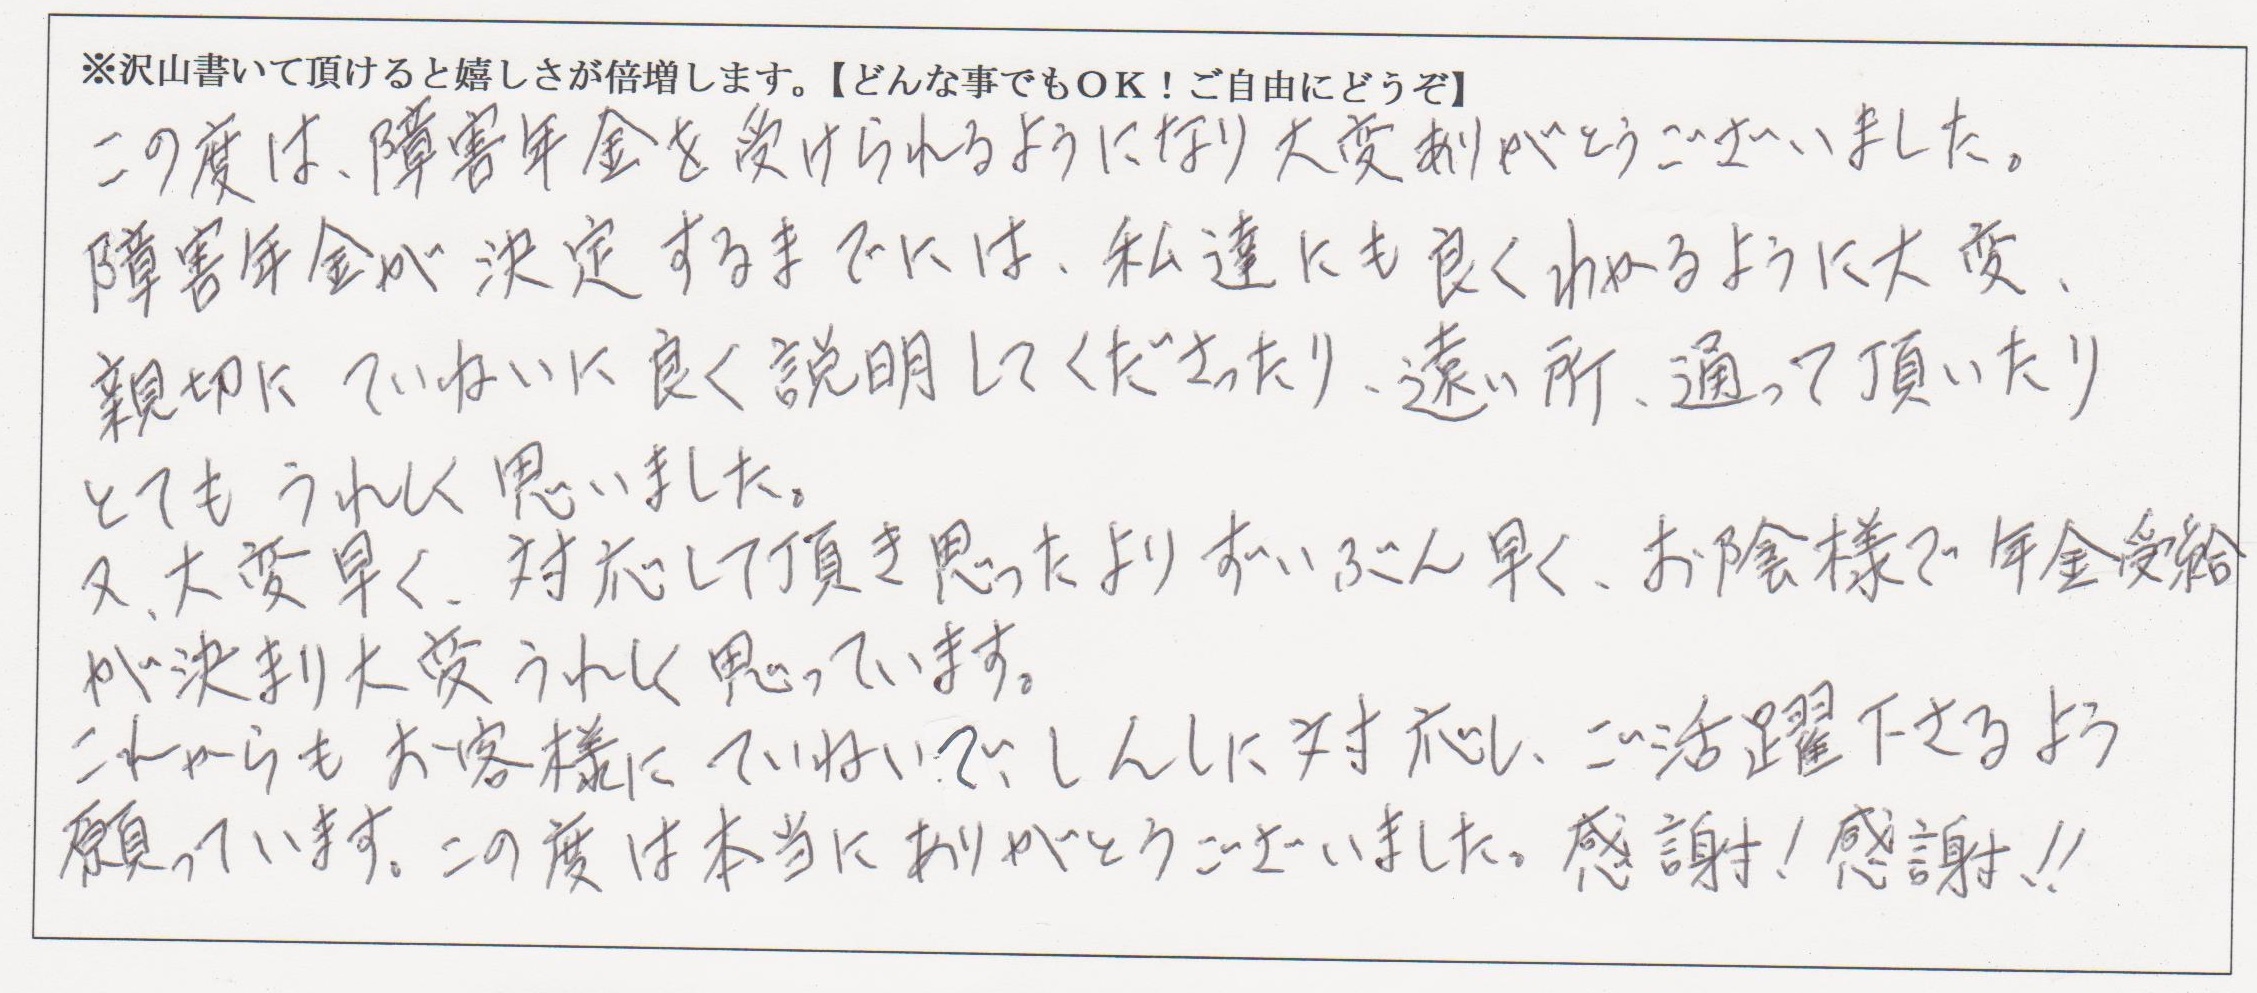 ※沢山書いて頂けると嬉しさが倍増します。【どんな事でもＯＫ！ご自由にどうぞ】
この度は、障害年金を受けられるようになり大変ありがとうございました。
障害年金が決定するまでには、私達にも良くわかるように大変、
親切にていねいに良く説明してくださったり、遠い所、通って頂いたり
とてもうれしく思いました。
又、大変早く、対応して頂き思ったよりずいぶん早く、お陰様で年金受給
が決まり大変うれしく思っています。
これからもお客様にていねいで、しんしに対応し、ご活躍下さるよう
願っています。この度は本当にありがとうございました。感謝！感謝!!